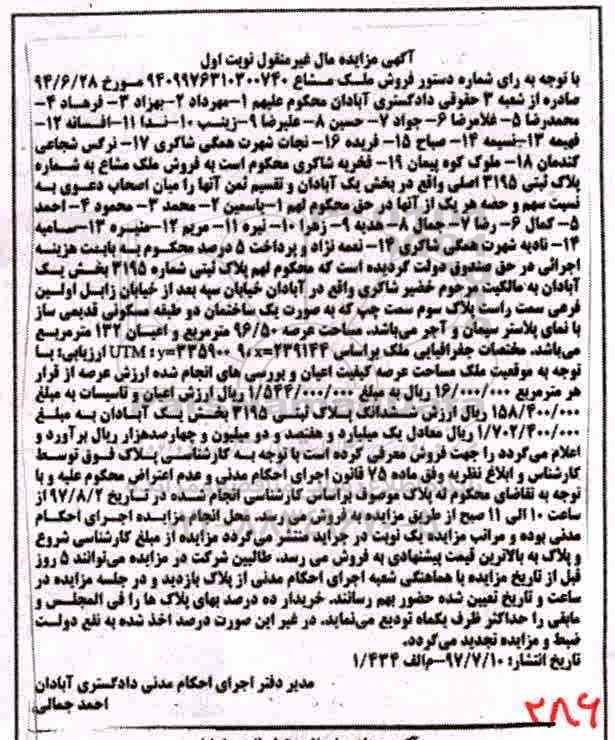 آگهی مزایده مال غیرمنقول نوبت اول
با توجه به رای شماره دستور فروش ملک مشاع ۹۴۰۹۹۷۶۳۱۰۳۰۰۷۴۰ مورخ ۹۴/۶/۲۸
صادره از شعبه ۳ حقوقی دادگستری آبادان محکوم علیهم ۱-مهرداد ۲-بهزاد ۳- فرهاد ۴-
محمدرضا ۵- غلامرضا ۶- جواد ۷- حسین ۸- علیرضا ۹-زینب ۱۰-ندا ۱۱-افسانه ۱۲-
فهیمه ۱۳-نسیمه ۱۴- صباح ۱۵- فریده ۱۶- نجات شهرت همگی شاکری ۱۷- نرگس شجاعی
گندمان ۱۸- ملوک کوه پیمان ۱۹- فخریه شاکری محکوم است به فروش ملک مشاع به شماره
پلاک ثبتی ۳۱۹۵ اصلی واقع در بخش یک آبادان و تقسیم ثمن آنها را میان اصحاب دعوی به
نسبت سهم و حصه هر یک از آنها در حق محکوم لهم ۱-یاسمین ۲- محمد ۳- محمود ۴- احمد
۵- کمال ۶- رضا ۷-جمال ۸- هدیه ۹- زهرا ۱۰- نیره ۱۱- مریم ۱۲-منیره ۱۳-سامیه
۱۴- نادیه شهرت همگی شاکری ۱۴- نعمه نژاد و پرداخت ۵ درصد محکوم به بابت هزینه
اجرائی در حق صندوق دولت گردیده است که محکوم لهم پلاک ثبتی شماره ۳۱۹۵ بخش یک
آبادان به مالکیت مرحوم خضیر شاکری واقع در آبادان خیابان سیه بعد از خیابان زابل اولین
فرعی سمت راست پلاک سوم سمت چپ که به صورت یک ساختمان دو طبقه مسکونی قدیمی ساز
با نمای پلاستر سیمان و آجر می‌باشد. مساحت عرصه ۹۶/۵۰ مترمربع و اعیان ۱۳۲ مترمربع
می‌باشد. مختصات جغرافیایی ملک براساس UTM : y=۳۳۵۹۰۰ ۹، x=۲۳۹۱۴۴ ارزیابی: با
توجه به موقعیت ملک مساحت عرصه کیفیت اعیان و بررسی های انجام شده ارزش عرصه از قرار
هر مترمربع ۱۶/۰۰۰/۰۰۰ ریال به مبلغ ۱/۵۴۴/۰۰۰/۰۰۰ ریال ارزش اعیان و تاسیسات به مبلغ
۱۵۸/۴۰۰/۰۰۰ ریال ارزش ششدانگ پلاک ثبتی ۳۱۹۵ بخش یک آبادان به مبلغ
۱/۷۰۲/۴۰۰/۰۰۰ ریال معادل یک میلیارد و هفتصد و دو میلیون و چهارصدهزار ریال برآورد و
اعلام می‌گردد را جهت فروش معرفی کرده است با توجه به کارشناسی پلاک فوق توسط
کارشناس و ابلاغ نظریه وفق ماده ۷۵ قانون اجرای احکام مدنی و عدم اعتراض محکوم علیه و با
توجه به تقاضای محکوم له پلاک موصوف براساس کارشناسی انجام شده در تاریخ ۹۷/۸/۲ از
ساعت ۱۰ الی ۱۱ صبح از طریق مزایده به فروش می رسد. محل انجام مزایده اجرای احکام
مدنی بوده و مراتب مزایده یک نوبت در جراید منتشر می‌گردد مزایده از مبلغ کارشناسی شروع
و پلاک به بالاترین قیمت پیشنهادی به فروش می رسد. طالبین شرکت در مزایده می‌توانند ۵ روز
قبل از تاریخ مزایده با هماهنگی شعبه اجرای احکام مدنی از پلاک بازدید و در جلسه مزایده در
ساعت و تاریخ تعیین شده حضور بهم رسانند. خریدار ده درصد بهای پلاک ها را فی المجلس و
مابقی را حداکثر ظرف یکماه تودیع می‌نماید. در غیر این صورت درصد اخذ شده به نفع دولت
ضبط و مزایده تجدید می‌گردد.
تاریخ انتشار: ۹۷/۷/۱۰-م‌الف ۱/۴۳۴
مدیر دفتر اجرای احکام مدنی دادگستری آبادان
احمد جمالی
۲۸۶